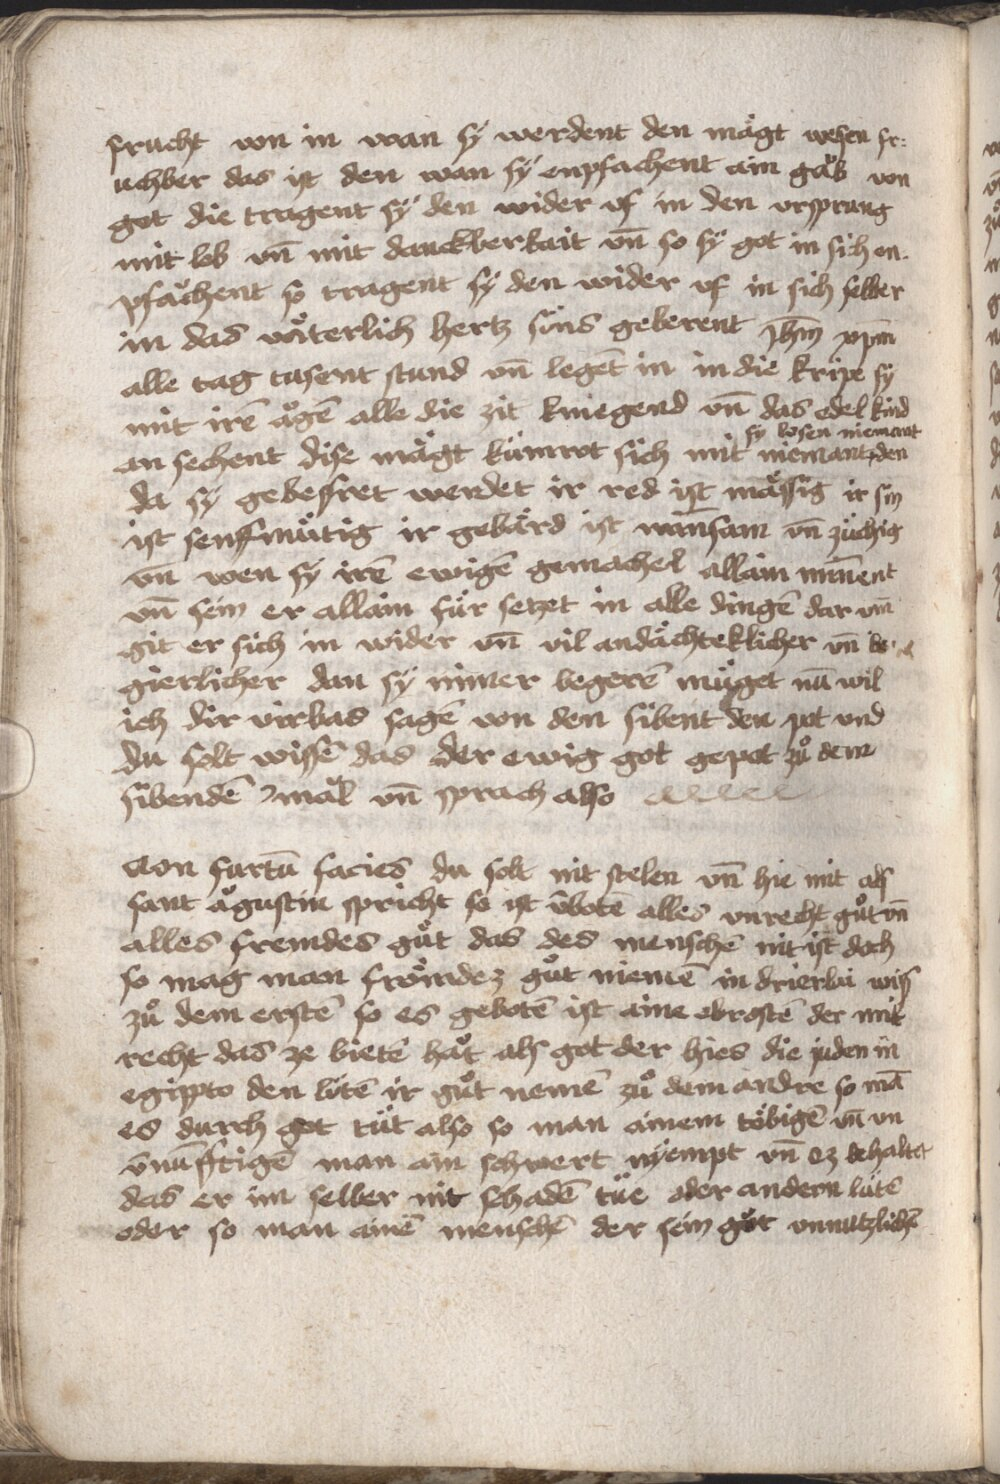 frucht von in wan sy werdent den mägt wesen fr:
uchber das ist den wan sy enpfachent ain gäb von
got die tragent sy den wider vf in den vrsprung
mit lob vn̄ mit danckberkait vn̄ so sy got in sich en-
pfächent so tragent sy den wider vf in sich selber
in das väterlich hertz sins geberent Jhm̄ xp̄m
alle tag tusent stund vn̄ legēt in in die kripe sy
mit irē ögē alle die zit kniegend vn̄ das edel kind
an sechent dise mägt kümrot sich mit niemant den
sy losen niemant
da sy gebessret werdet ir red ist mässig ir sin
ist senffmütig ir gebärd ist wunsam vn̄ züchig
vn̄ wen sy irē ewigē gemachel allain minēnt
vn̄ sein er allain für setzet in alle dingē dar vm̄
git er sich in wider vn̄ vil andächteklicher vn̄ be
gierlicher dan sy imer begerē müget nū wil
ich dir virbas sagē von den sibent den pot vnd
du solt wissē das der ewig got gepot zů dem
sibendē mäl vn̄ sprach also
Non furtū facies du solt nit stelen vn̄ hie mit als
sant ägustin spricht so ist v̄botē alles vnrecht gůt vn̄
alles fremdes gůt das des menschē nit ist doch
so mag man frömdez gůt niemē in drierlai wiss
zů dem erstē so es gebotē ist aine obrostē der mit
recht das ze bietē hät als got der hies die juden in
egipto den lütē ir gůt nemē zů dem andre so mā
es durch got tůt also so man ainem töbigē vn̄ vn
v̄nūfftigē man ain schwert nyempt vn̄ ez behaltet
das er im selber nit schadē tüe oder andern lütē
oder so man ainē menschē der sein gůt vnnutzlichē